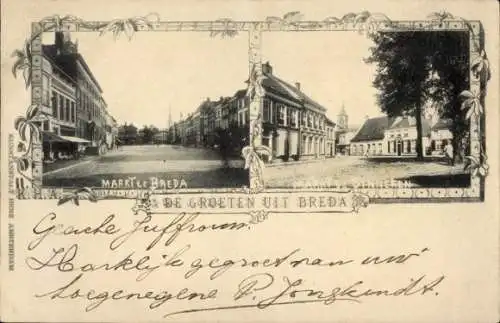 MARKT te BREDA
MARKT te GINNEKEN
DE GROETEN UIT BREDA
Geachte Juffrouw.
Hartelijk gegroet van uw
toegenegene P. Jongkindt.